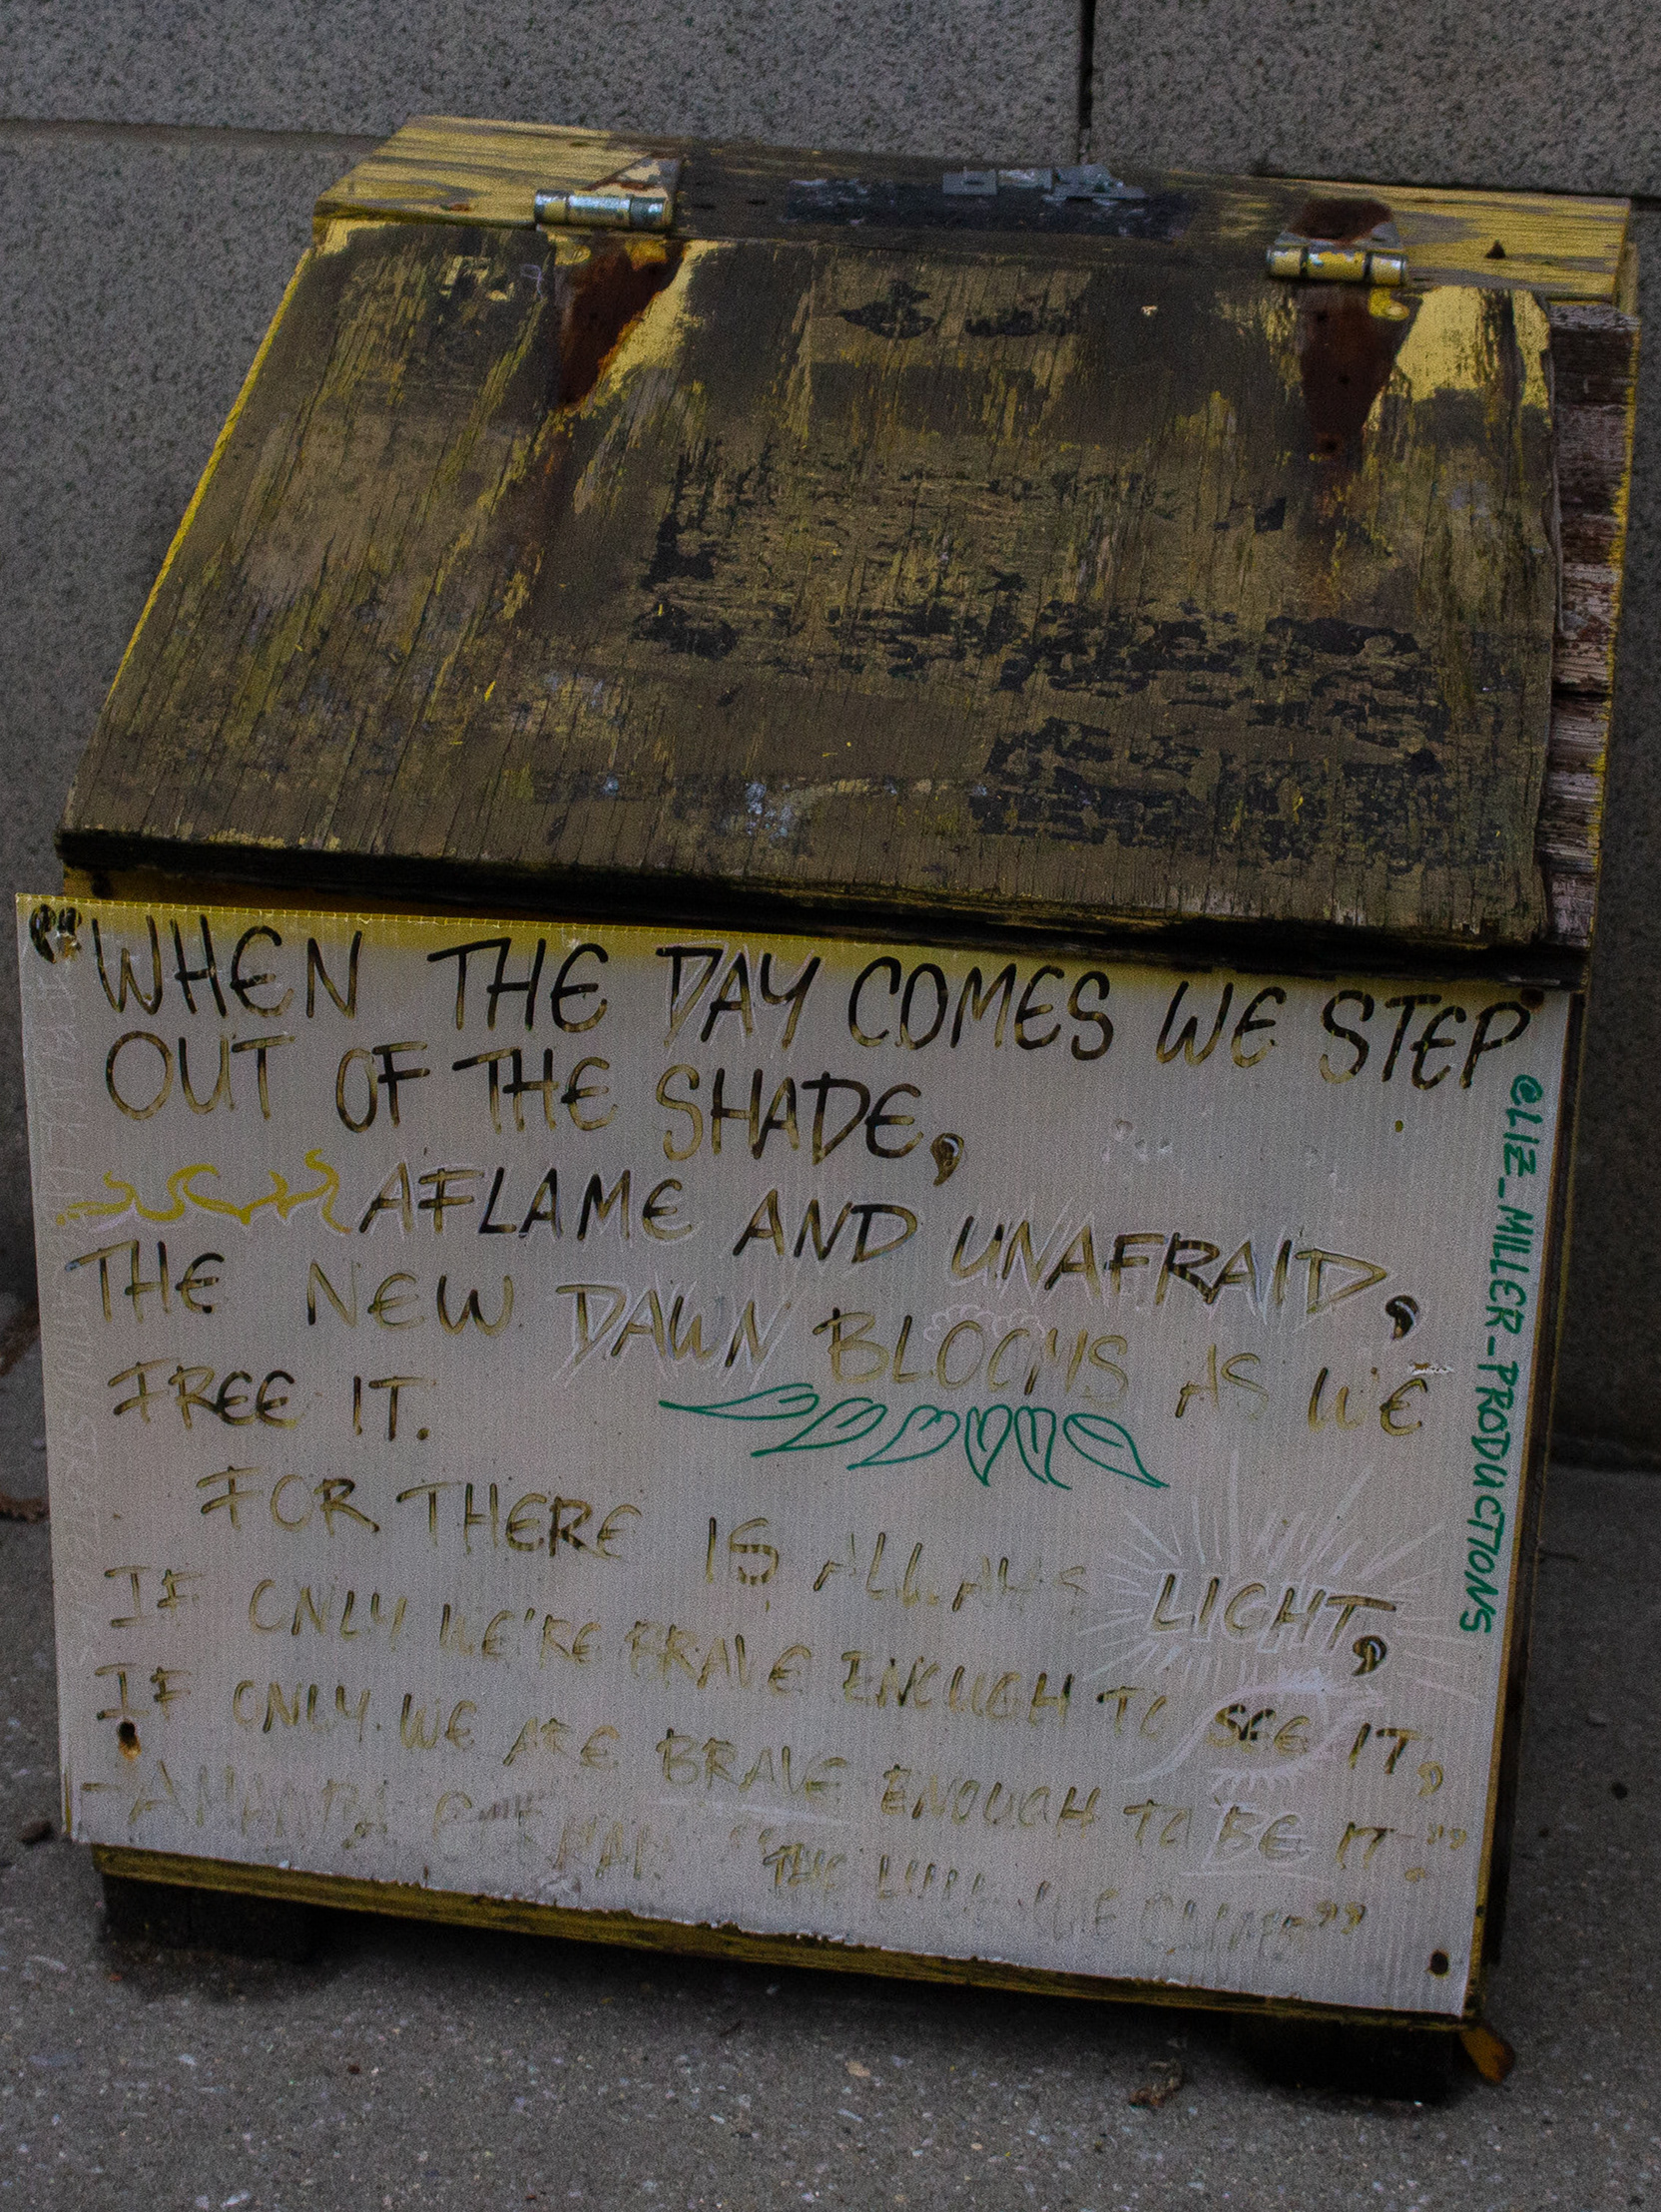 "WHEN THE DAY COMES WE STEP
OUT OF THE SHADE,
AFLAME AND UNAFRAID,
THE NEW DAWN BLOOMS AS WE
FREE IT.
FOR THERE IS ALWAYS LIGHT,
IF ONLY WE'RE BRAVE ENOUGH TO SEE IT,
IF ONLY WE ARE BRAVE ENOUGH TO BE IT."
-AMANDA GORMAN "THE HILL WE CLIMB"
@LIZ_MILLER_PRODUCTIONS